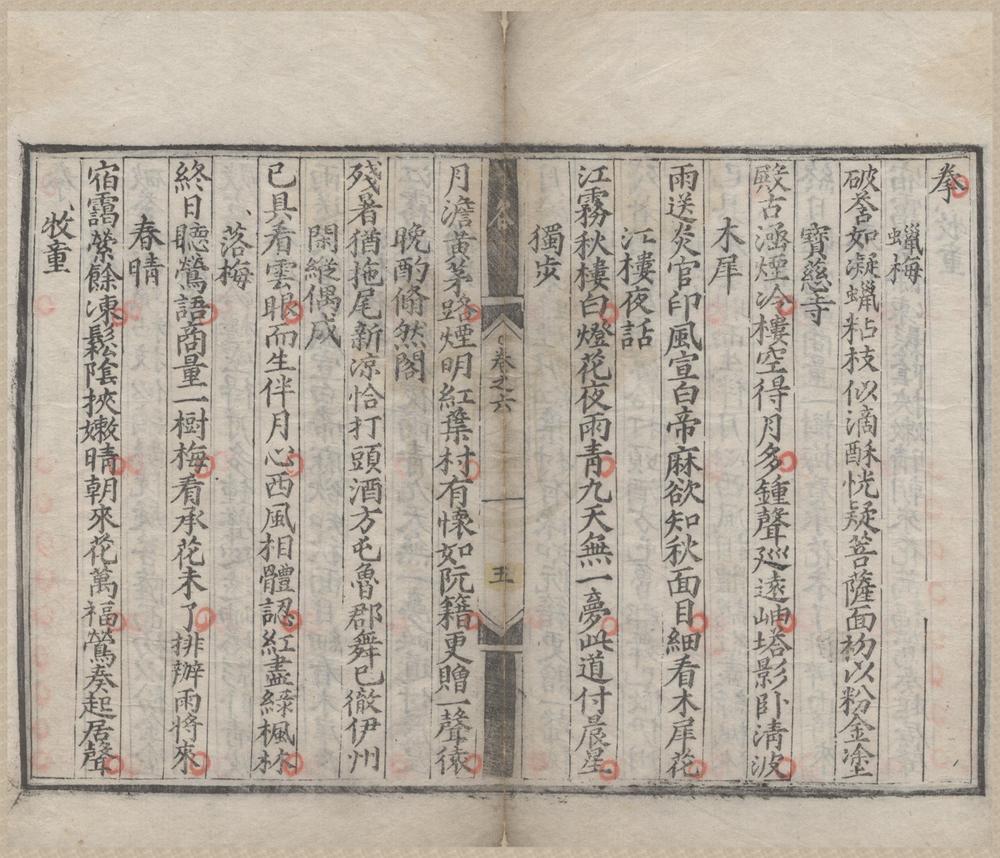 拳
蠟梅
破荅如凝蠟粘枝似滴酥恍疑菩薩面初以粉金塗
寶慈寺
殿古涵煙冷樓空得月多鍾聲廵遠岫塔影卧清波
木犀
雨送炎官印風宣白帝麻欲知秋面目細看木犀花
江樓夜話
江霧秋樓白燈花夜雨青九天無一夢此道付晨星
獨步
卷之六
五
月澹黄茅路煙明紅葉村有懷如阮籍更贈一聲猿
晚酌翛然閣
殘暑猶拖尾新凉恰打頭酒方屯魯郡舞已徹伊州
閑縱偶成
已具看雲眼而生伴月心西風相體認紅盡綠楓林
落梅
終日聽鶯語商量一樹梅看承花未了排辦雨將來
春晴
宿靄縈餘凍鬆隂挾嫩晴朝來花萬福鶯奏起居聲
牧童